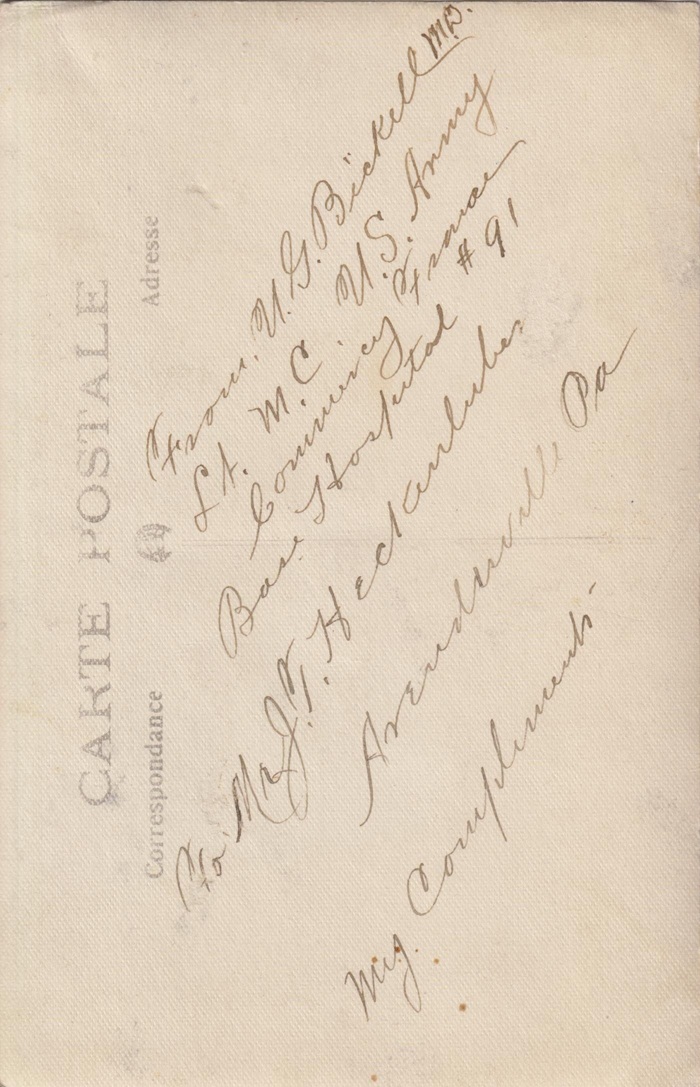 CARTE POSTALE
Correspondance
Adresse
From. U. G. Bickell M.D.
Lt. M.C. U.S. Army
Commercy France
Base Hospital #91
To, Mr J. T. Heckenluber
Arendtsville Pa
My Compliments